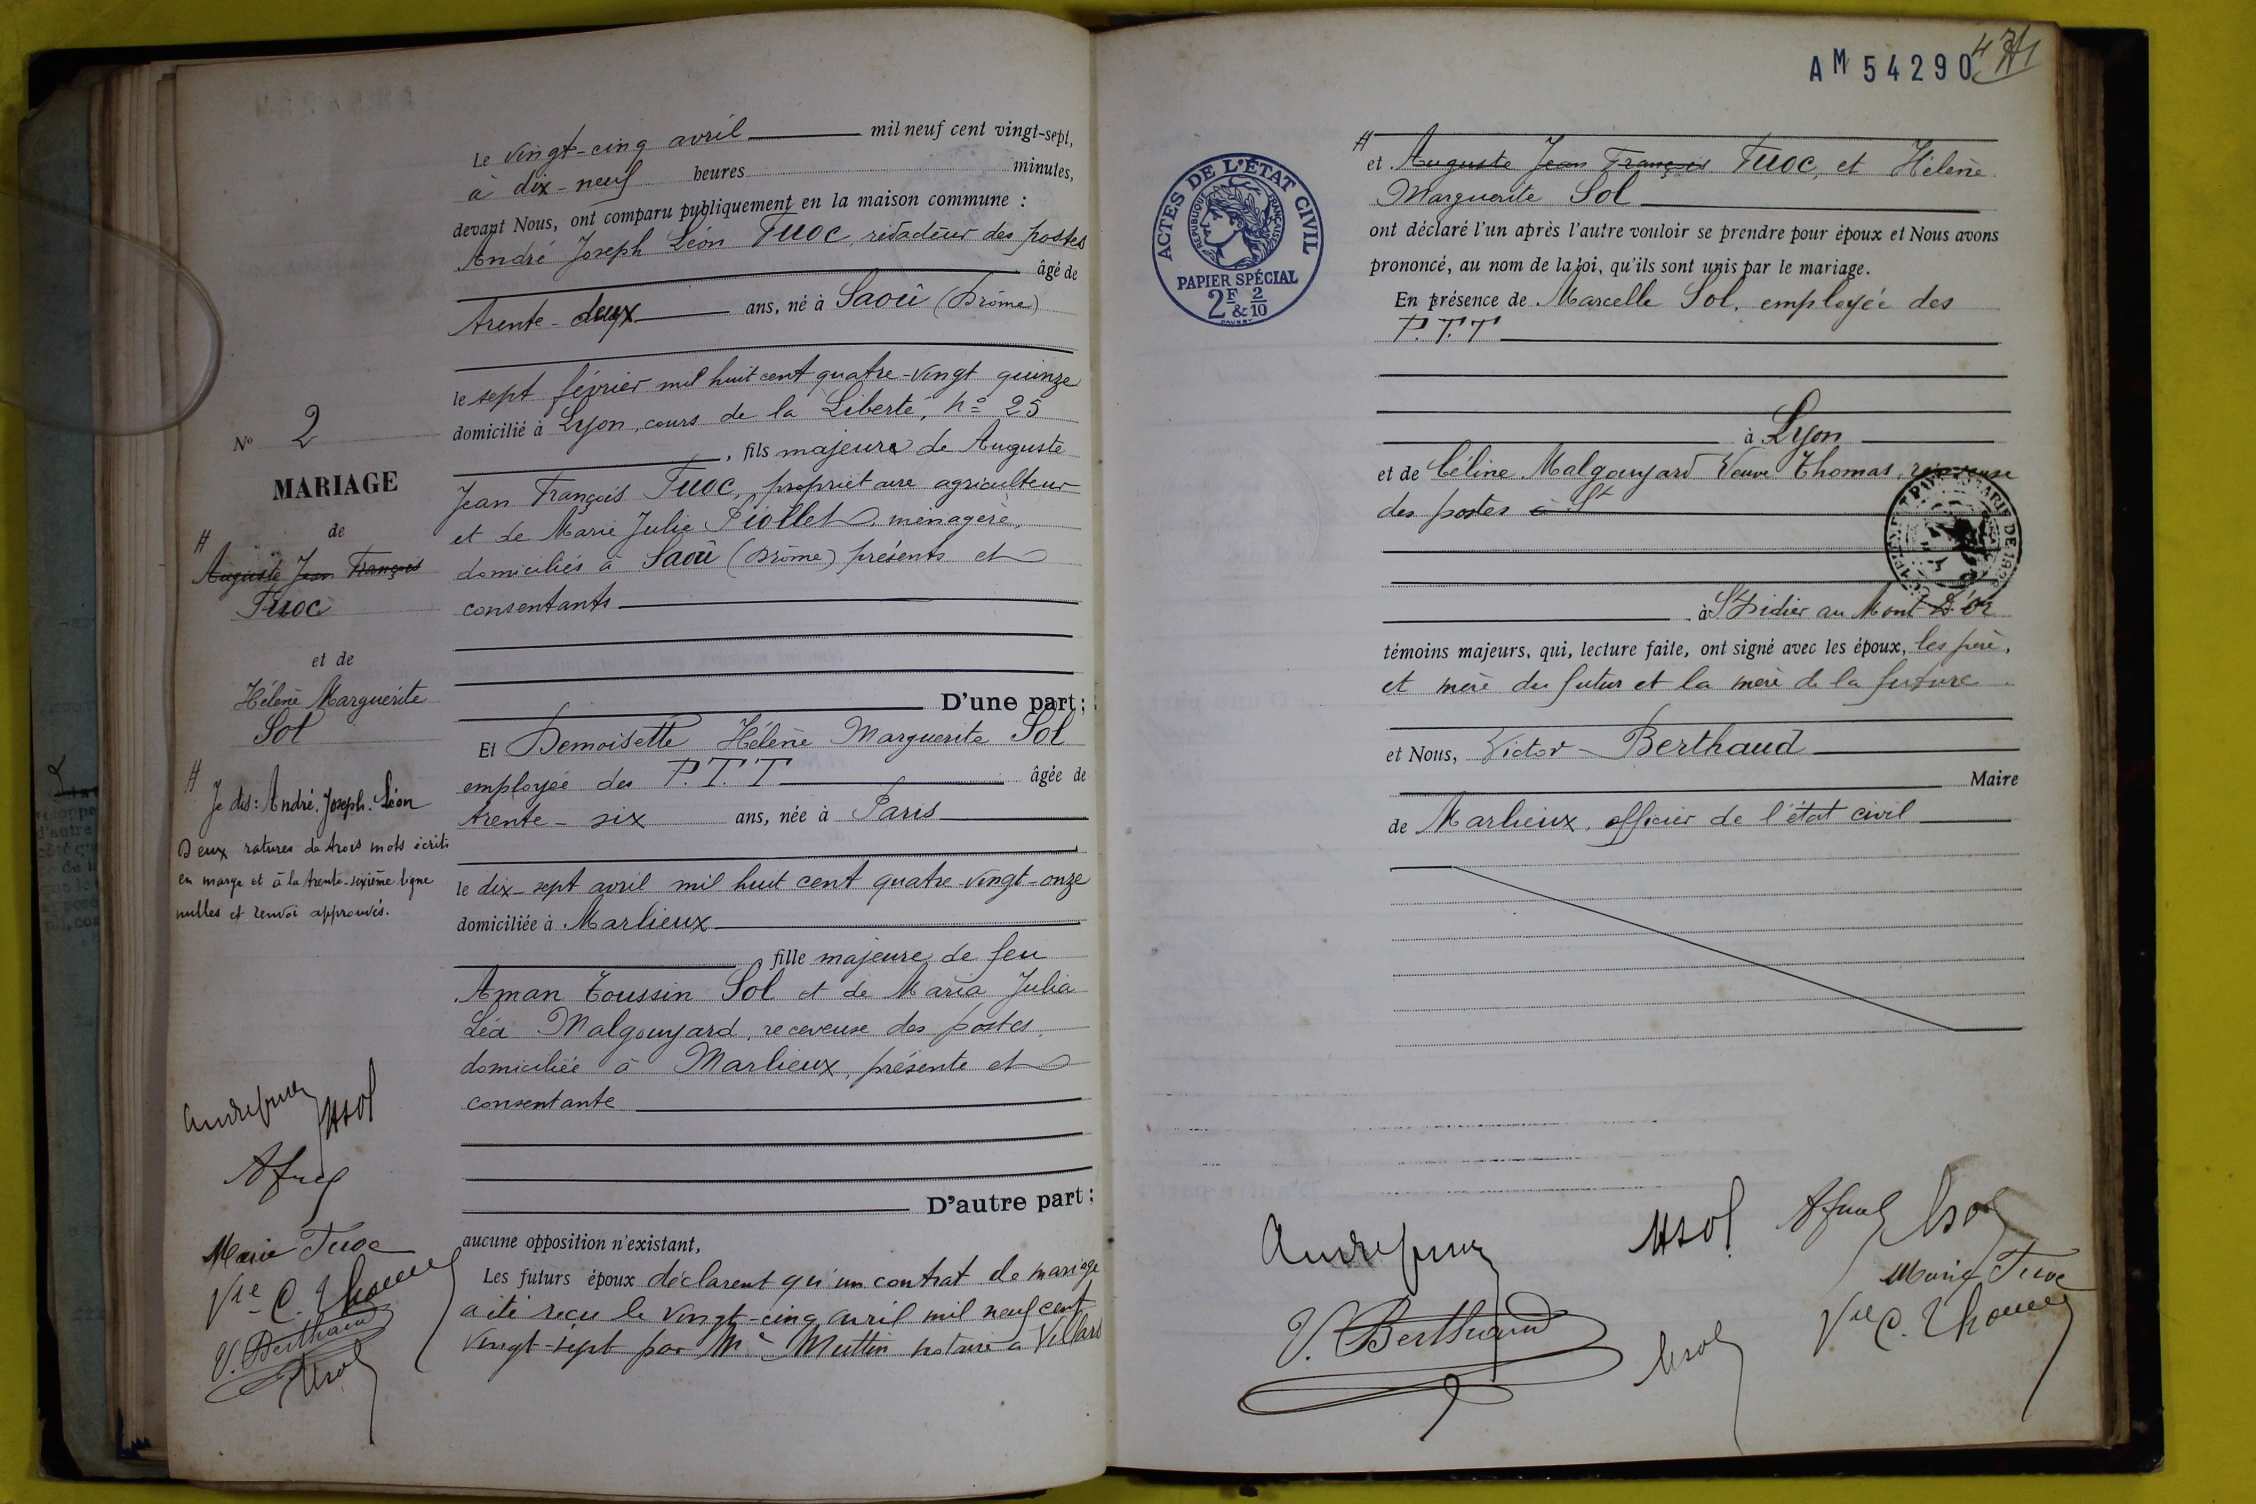 Le vingt-cinq avril mil neuf cent vingt-sept,
à dix-neuf heures minutes,
devant Nous, ont comparu publiquement en la maison commune :
André Joseph Léon Fuoc, rédacteur des postes
âgé de
trente-deux ans, né à Saoû (Drôme)
le sept février mil huit cent quatre-vingt quinze
domicilié à Lyon, cours de la Liberté, no 25
, fils majeure de Auguste
Jean François Fuoc, propriétaire agriculteur
et de Marie Julie Piollet, ménagère,
domiciliés à Saoû (Drôme) présents et
consentants
D'une part ;
Et Demoiselle Hélène Marguerite Sol
employée des P.T.T âgée de
trente-six ans, née à Paris
le dix-sept avril mil huit cent quatre-vingt-onze
domiciliée à Marlieux
fille majeure de feu
Aman Toussin Sol et de Maria Julia
Léa Malgouyard, receveuse des postes
domiciliée à Marlieux, présente et
consentante
D'autre part :
aucune opposition n'existant,
Les futurs époux déclarent qu'un contrat de mariage
a été reçu le vingt-cinq avril mil neuf cent
vingt-sept par Me Muttin notaire à Villars
No 2
MARIAGE
de
Auguste Jean François
Fuoc
et de
Hélène Marguerite
Sol
Je dis : André. Joseph. Léon
Deux ratures de trois mots écrits
en marge et à la trente-sixième ligne
nulles et renvoi approuvés.
HSol
Marie Fuoc
Vve C. Thomas
V. Berthaud
AM 54290
et Auguste Jean François Fuoc, et Hélène
Marguerite Sol
ont déclaré l'un après l'autre vouloir se prendre pour époux et Nous avons
prononcé, au nom de la loi, qu'ils sont unis par le mariage.
En présence de Marcelle Sol, employée des
P.T.T
à Lyon
et de Céline Malgouyard Veuve Thomas, receveuse
des postes à St
à St Didier au Mont-d'Or
témoins majeurs, qui, lecture faite, ont signé avec les époux, les père,
et mère du futur et la mère de la future
et Nous, Victor Berthaud
Maire
de Marlieux, officier de l'état civil
ACTES DE L'ÉTAT CIVIL
RÉPUBLIQUE FRANÇAISE
PAPIER SPÉCIAL
2F & 2/10
HSol
Marie Fuoc
Vve C. Thomas
V. Berthaud